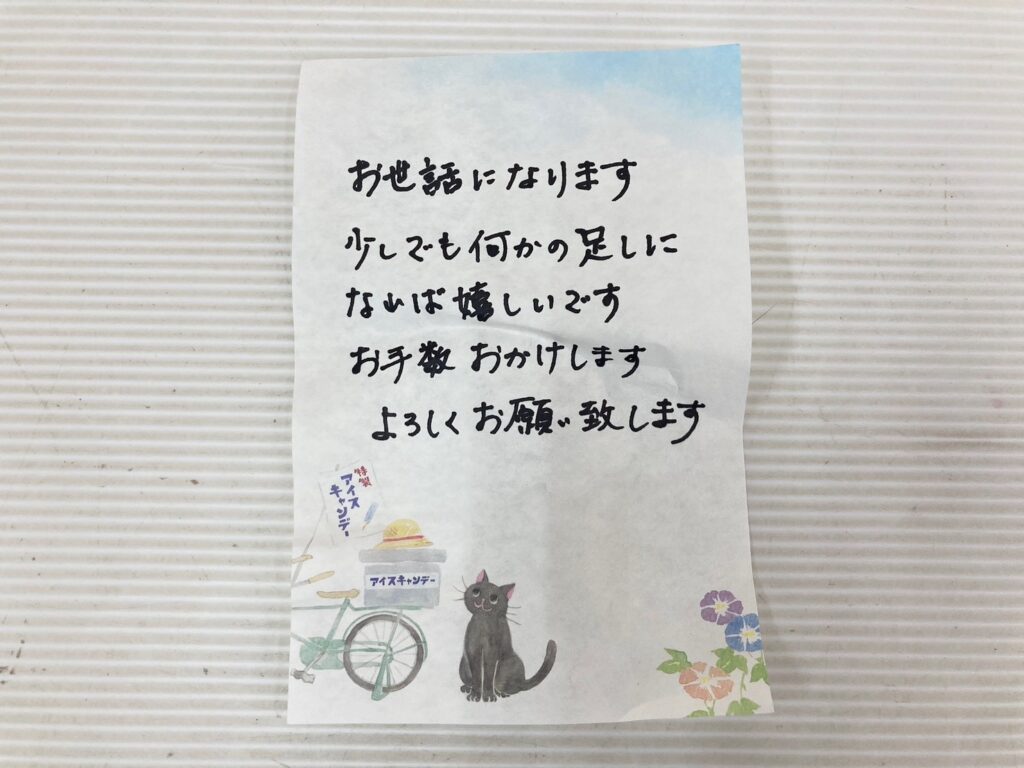 お世話になります
少しでも何かの足しに
なれば嬉しいです
お手数おかけします
よろしくお願い致します
特製
アイス
キャンデー
アイスキャンデー